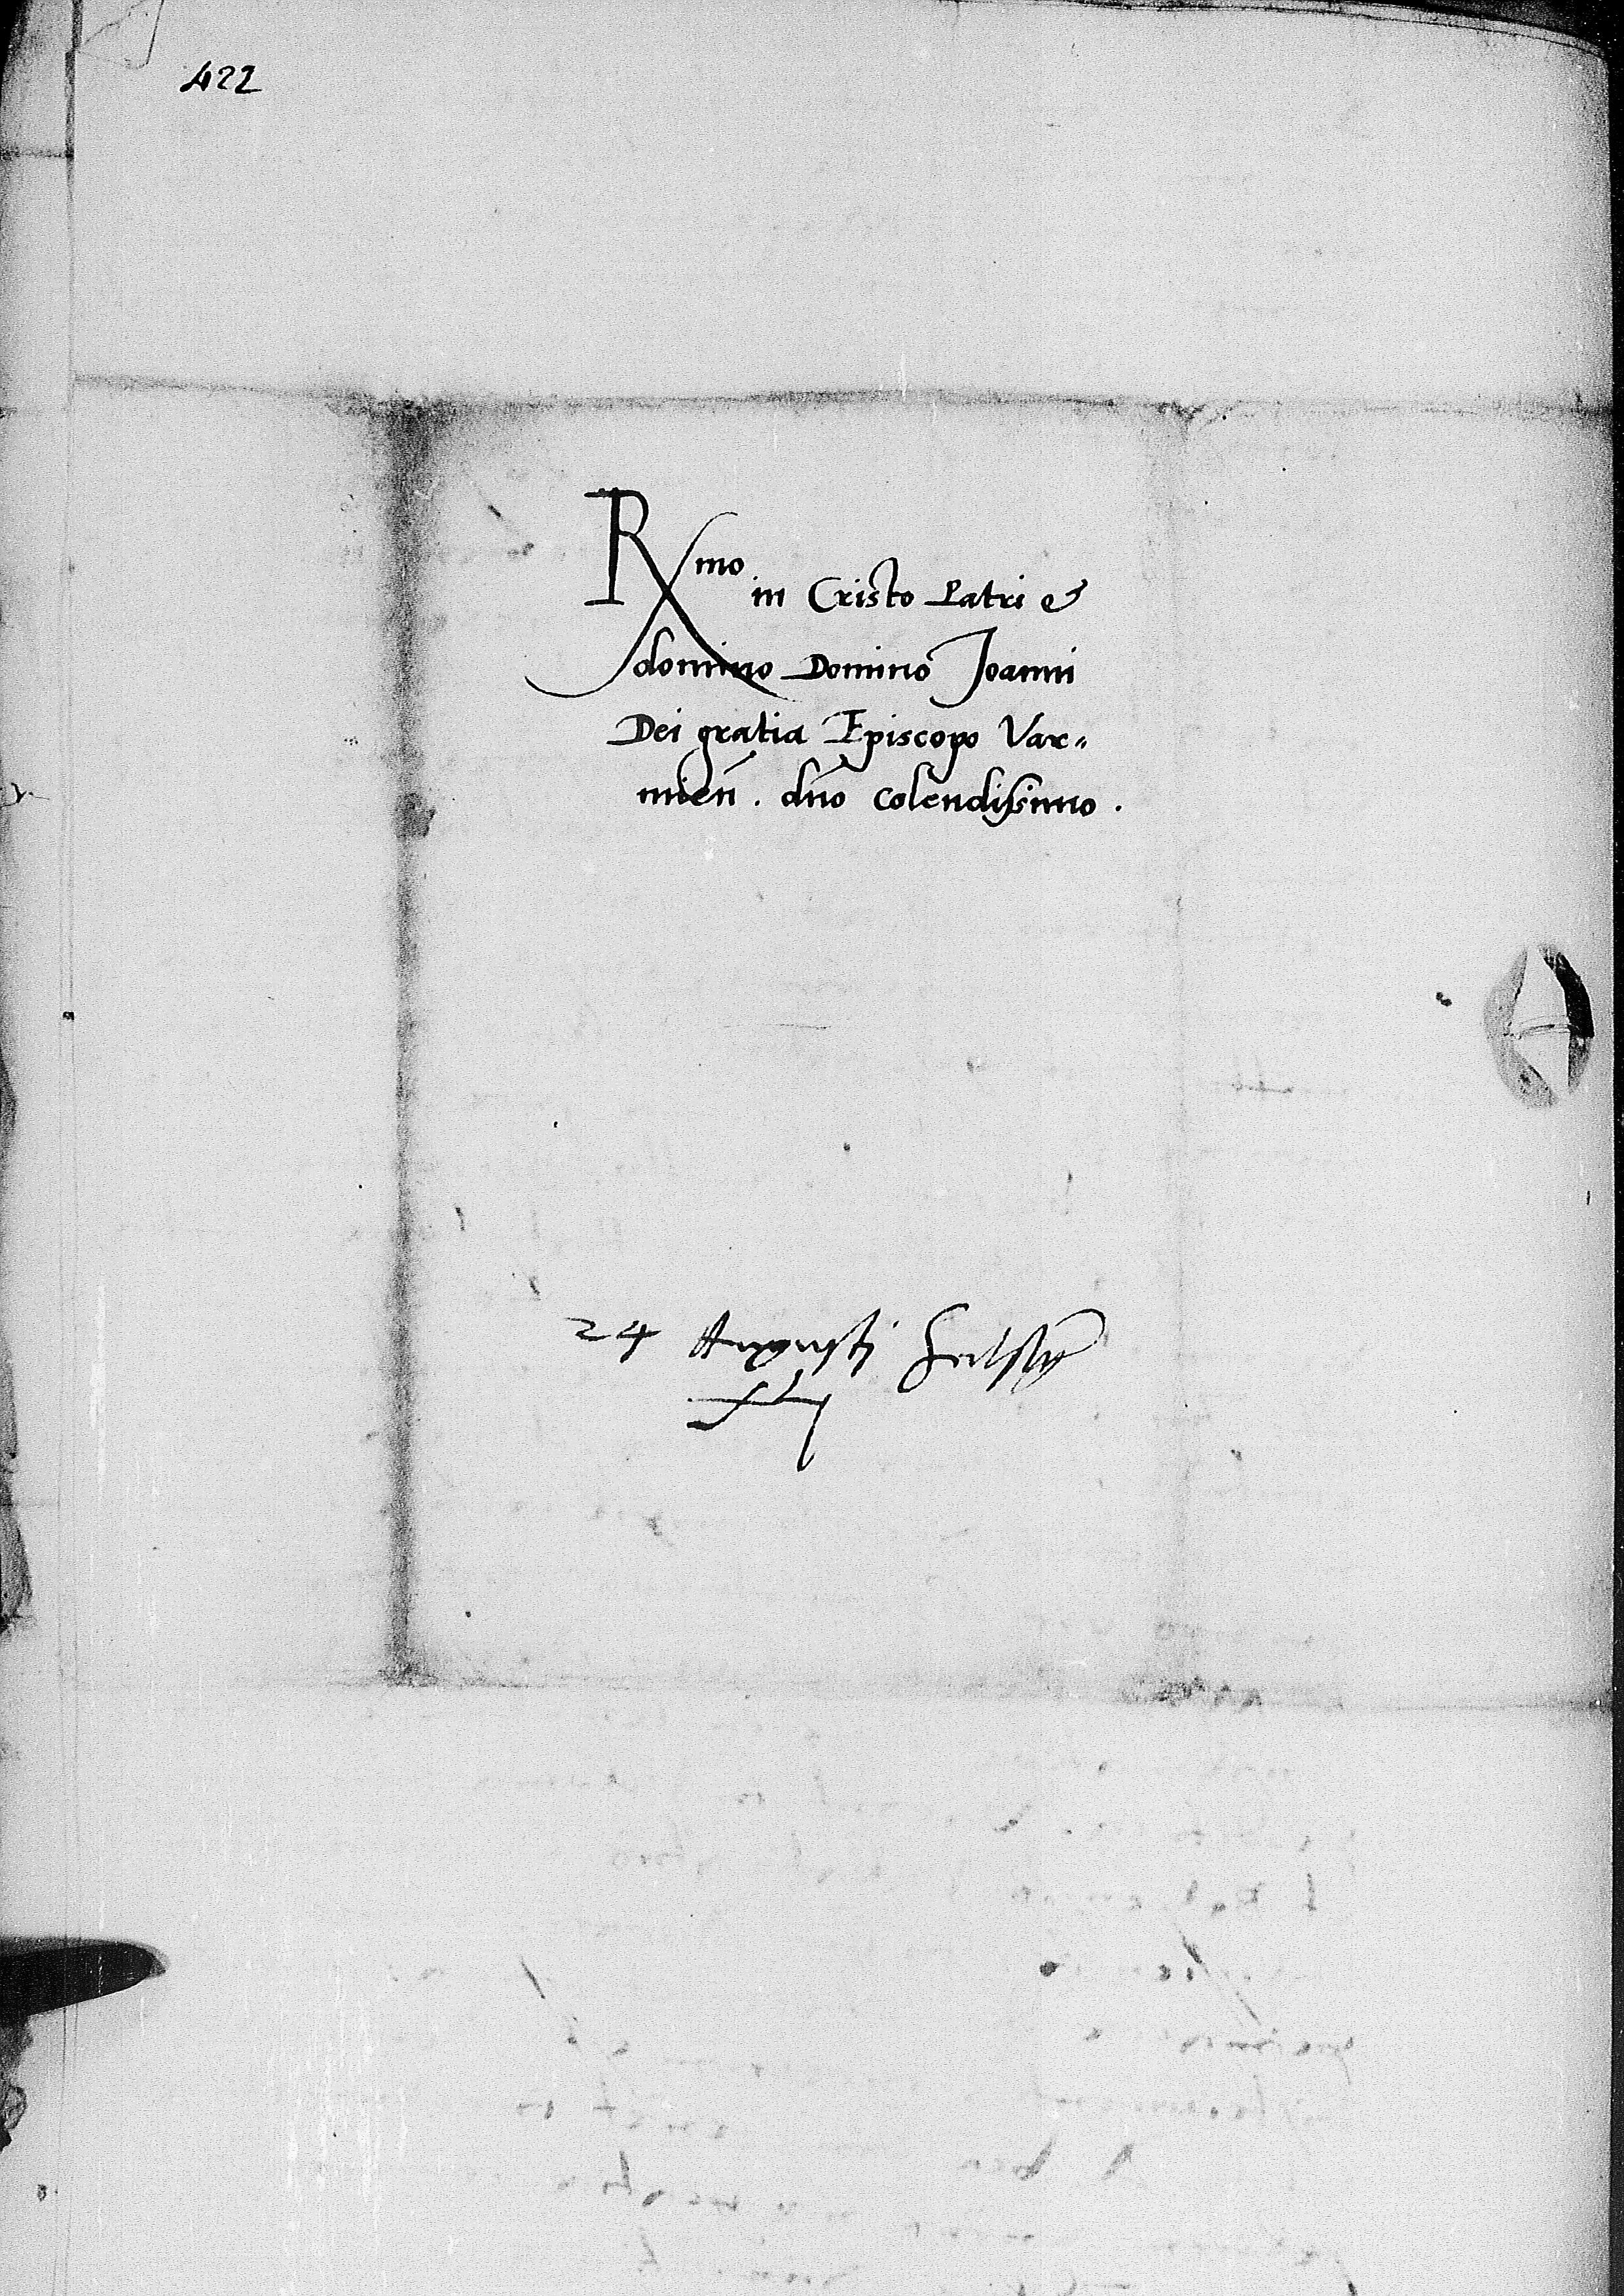 422
Rmo in Cristo Patri &
domino Domino Joanni
Dei gratia Episcopo Var„
mień. dño colendissimo.
24 Augusti